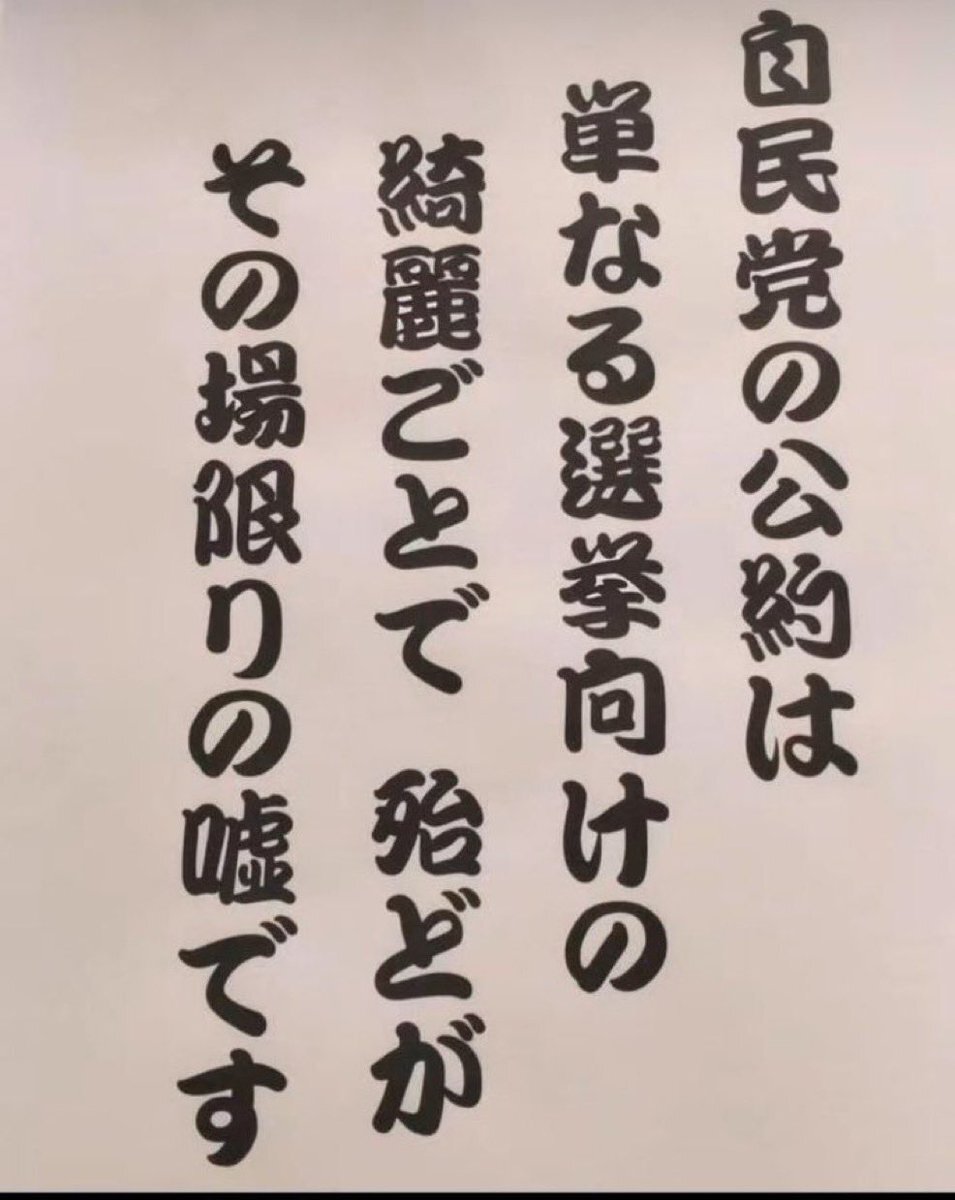 自民党の公約は
単なる選挙向けの
綺麗ごとで　殆どが
その場限りの嘘です